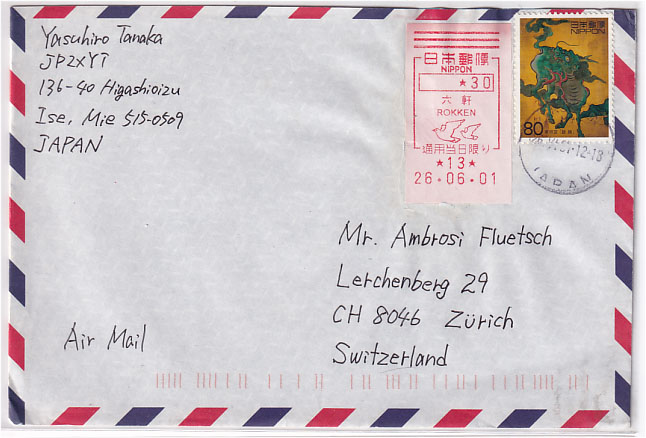 Yasuhiro Tanaka
JP2XYT
136-40 Higashioizu
Ise, Mie 515-0509
JAPAN
日本郵便
NIPPON
★30
六軒
ROKKEN
適用当日限り
★13★
26・06・01
日本郵便
NIPPON
80
JAPAN
Mr. Ambrosi Fluetsch
Lerchenberg 29
CH 8046 Zürich
Switzerland
Air Mail